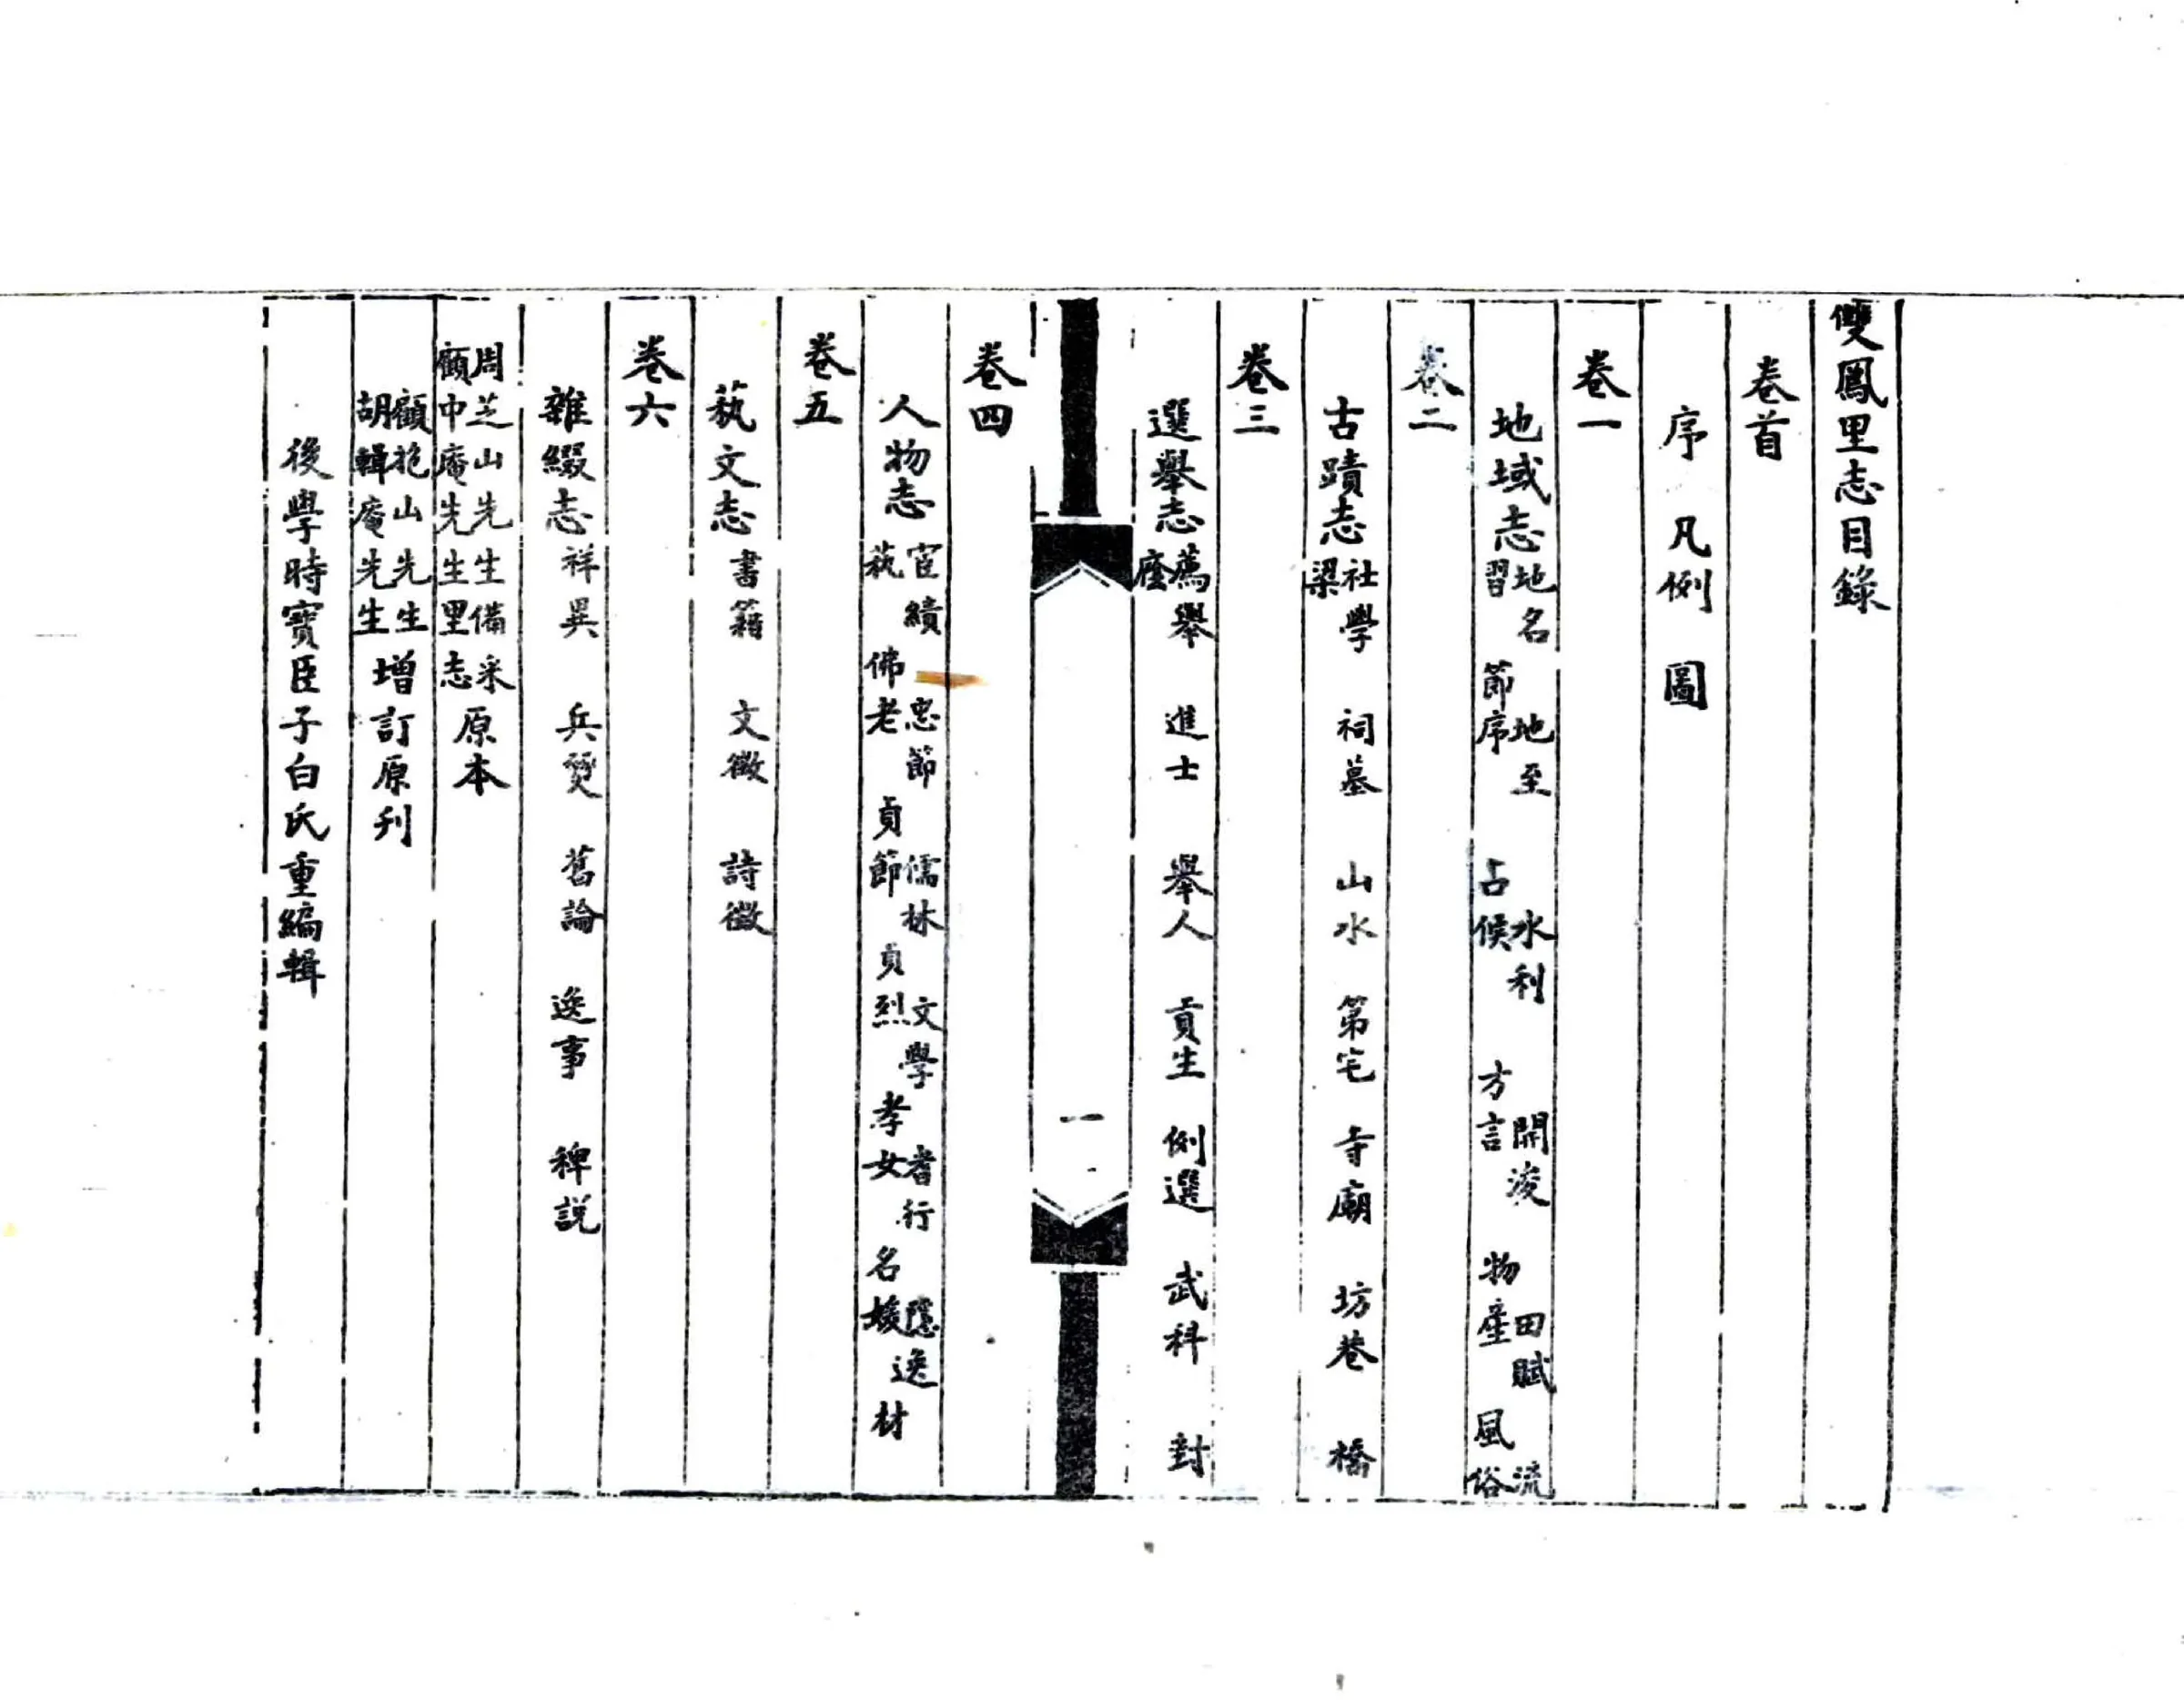 雙鳳里志目錄
卷首
序 凡例 圖
卷一
地域志 地名 地至 水利 開浚 田賦 流
習 節序 占候 方言 物產 風俗
卷二
古蹟志 社學 祠墓 山水 第宅 寺廟 坊巷 橋
梁
卷三
選舉志 薦舉 進士 舉人 貢生 例選 武科 封
廕
一
卷四
人物志 宦績 忠節 儒林 文學 耆行 隱逸 材
蓺 佛老 貞節 貞烈 孝女 名媛
卷五
蓺文志 書籍 文徵 詩徵
卷六
雜綴志 祥異 兵燹 舊論 逸事 稗説
周芝山先生備采
顧中庵先生里志原本
顧抱山先生
胡輯庵先生增訂原刋
後學時寶臣子白氏重編輯